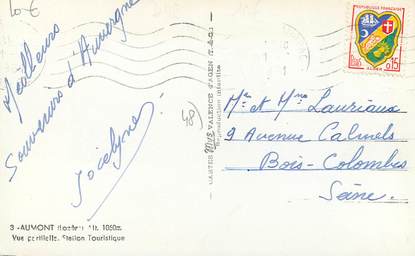 10 €
Meilleurs
Souvenirs d'Auvergne
Jocelyne
48
3 - AUMONT (Lozère) Alt. 1050m.
Vue partielle. Station Touristique
CARTES MYS VALENCE D'AGEN (T.&G.)
Reproduction interdite
REPUBLIQUE FRANÇAISE
ALGER
POSTES
0,15
Mr et Mme Lauriaux
9 Avenue Calmels
Bois-Colombes
Seine.